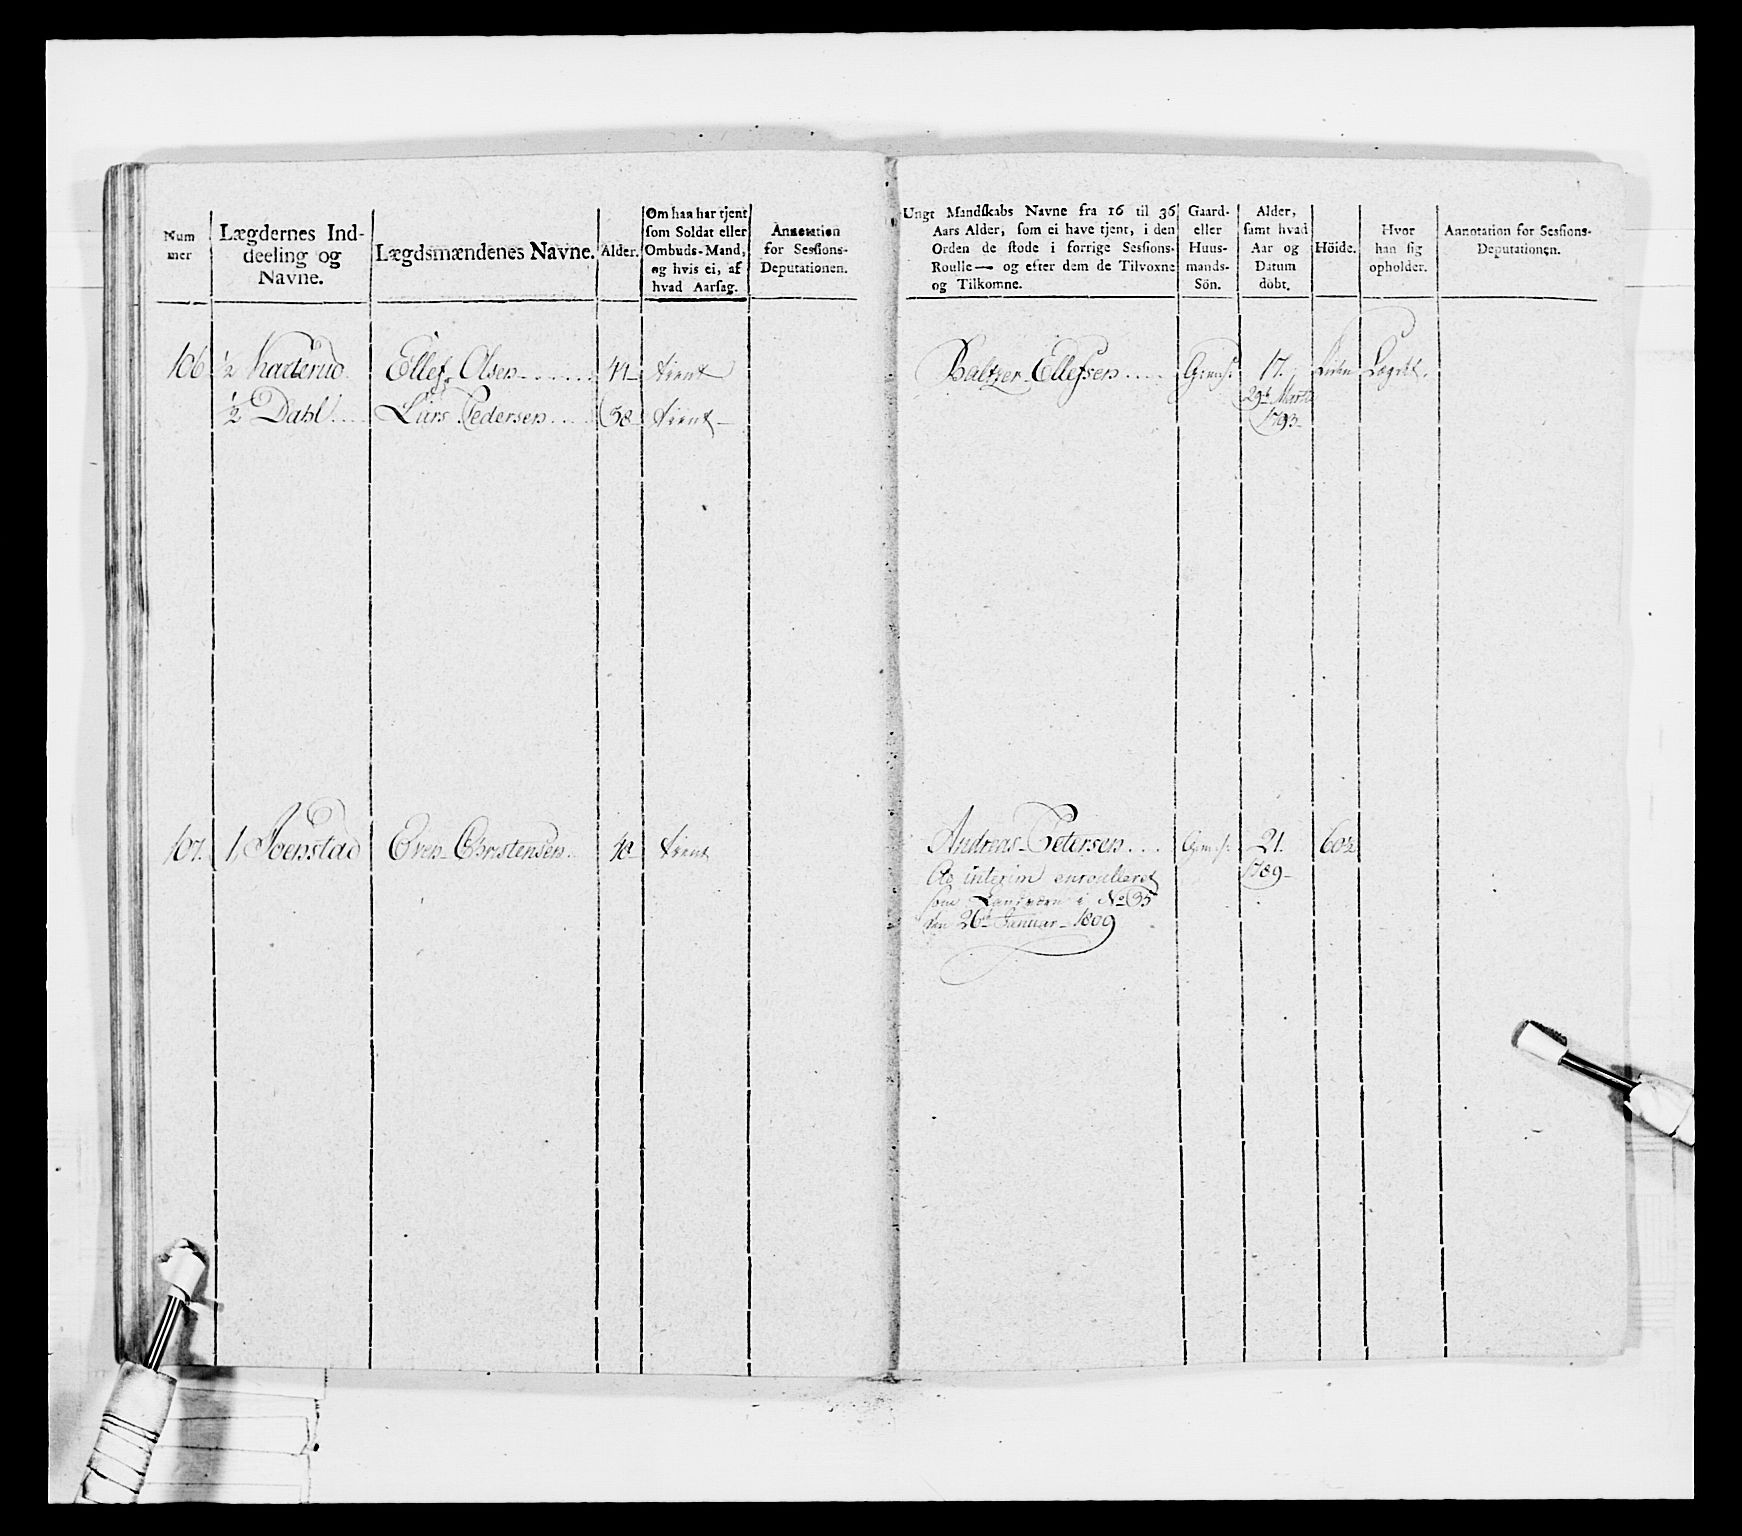 Num
mer
Lægdernes Ind-
deeling og
Navne.
Lægdsmændenes Navne.
Alder.
Om han har tjent
som Soldat eller
Ombuds-Mand,
og hvis ei, af
hvad Aarsag.
Annotation
for Sessions-
Deputationen.
Ungt Mandskabs Navne fra 16 til 36
Aars Alder, som ei have tjent, i den
Orden de stode i forrige Sessions-
Roulle — og efter dem de Tilvoxne
og Tilkomne.
Gaard-
eller
Huus-
mands-
Sön.
Alder,
samt hvad
Aar og
Datum
döbt.
Höide.
Hvor
han sig
opholder.
Annotation for Sessions-
Deputationen.
106 ½ Kaaterud Ellef Olsen 44 tient Baltzer Ellefsen Gmds. 17. Liden Lægdet.
½ Dahl Lars Pedersen 38 tient 29de Martz
1793
107. 1 Joenstad Even Christensen 40 tient Andreas Petersen Gmds. 21. 60½
Ad interim enroulleret 1789
som Landværn i No 35
den 26de Januar 1809